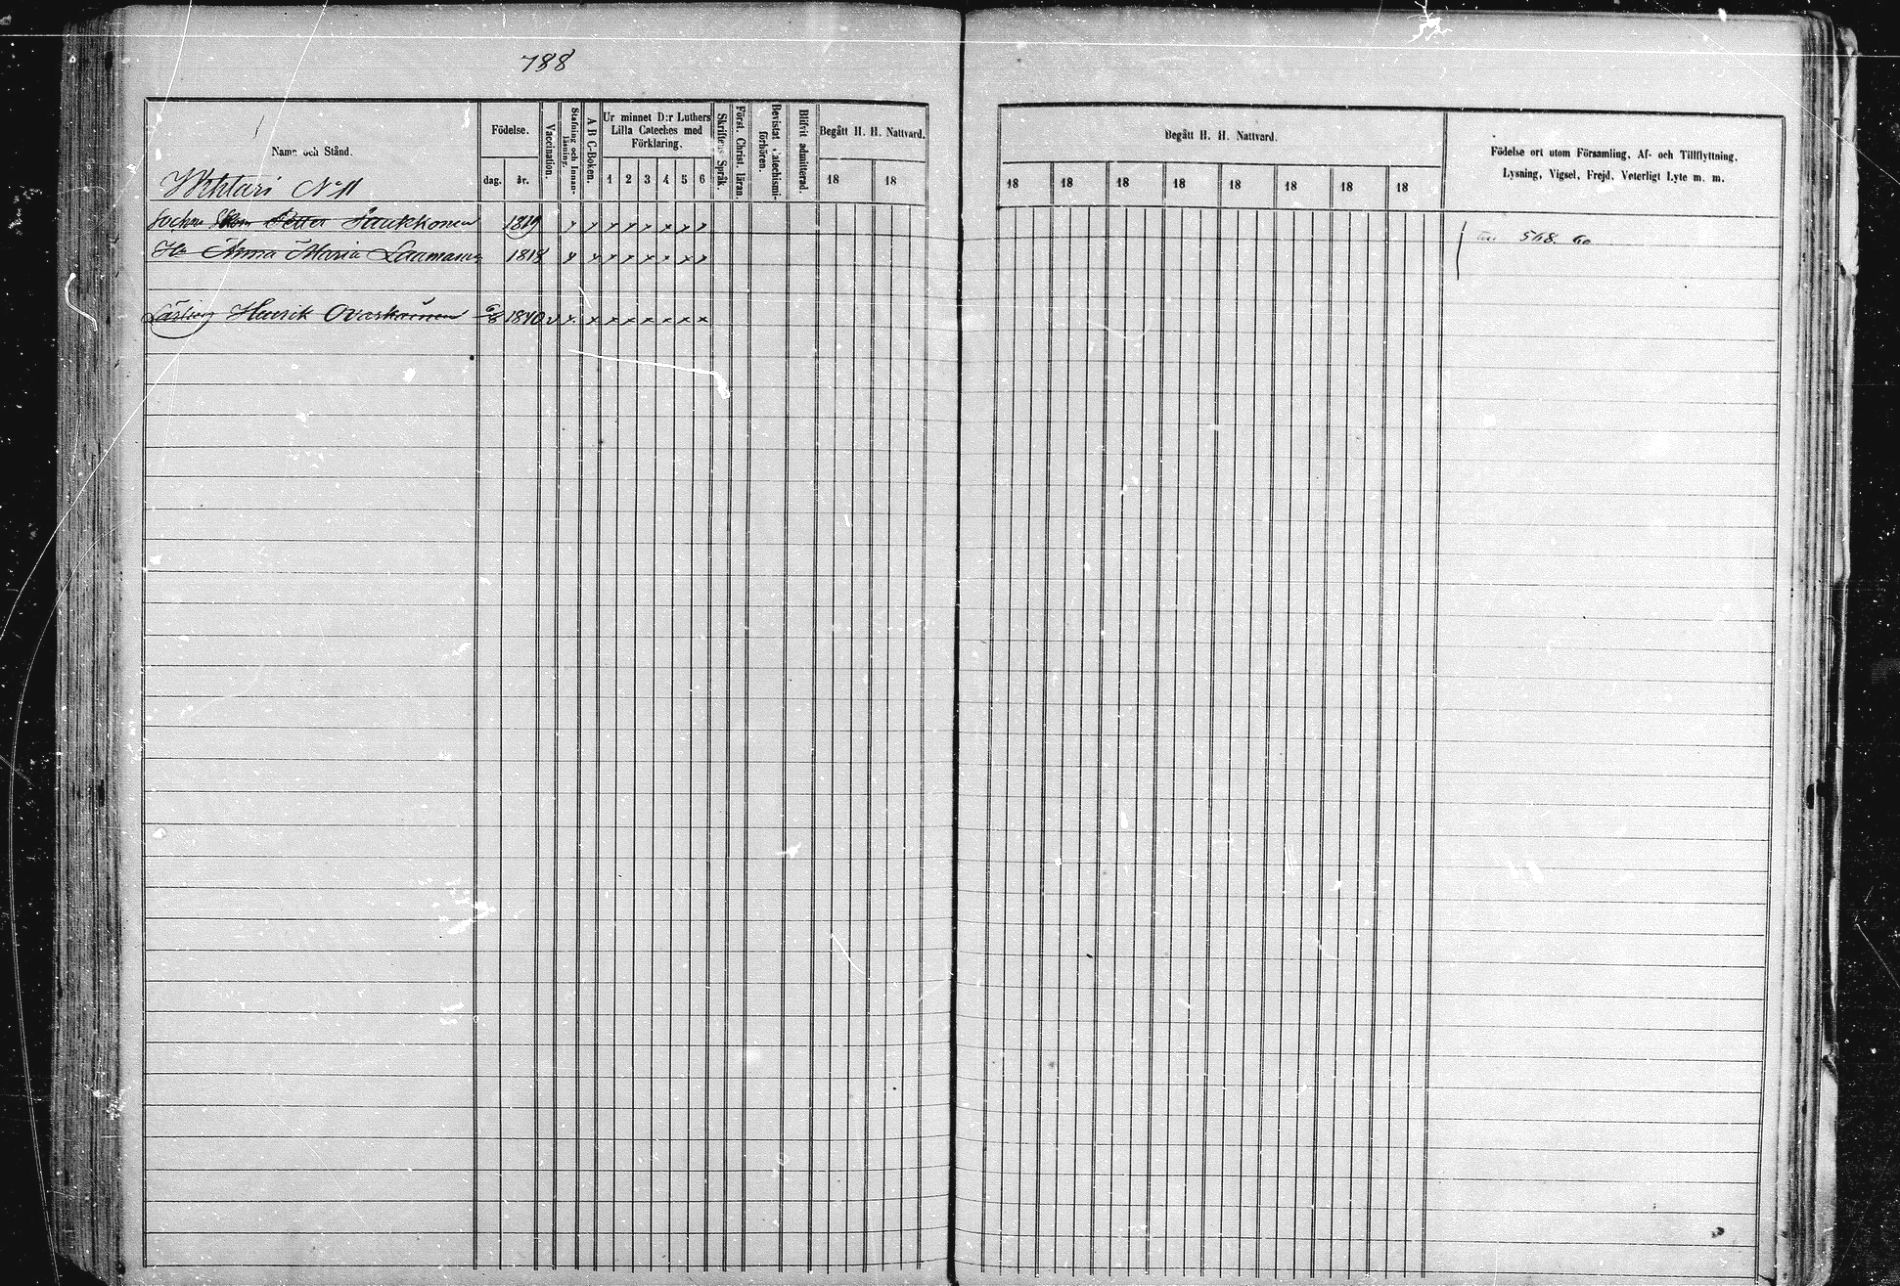 788
Namn och Stånd.
Födelse.
dag. år.
Vaccination.
Stafning och Innan-läsning.
A B C-Boken.
Ur minnet D:r Luthers
Lilla Cateches med
Förklaring.
1 2 3 4 5 6
Skriftens Språk.
Först. Christ. läran.
Bevistat Catechismi-förhören.
Blifvit admitterad.
Begått H. H. Nattvard.
18 18
Begått H. H. Nattvard.
18 18 18 18 18 18 18 18
Födelse ort utom Församling, Af- och Tillflyttning,
Lysning, Vigsel, Frejd, Veterligt Lyte m. m.
Wihtari No 11
Petter Laukkonen 1819 x x x x x x x x
H. Anna Maria Laamanen 1818 x x x x x x x x
568. 60
Henrik Ovaskainen 1840 v x x x x x x x x